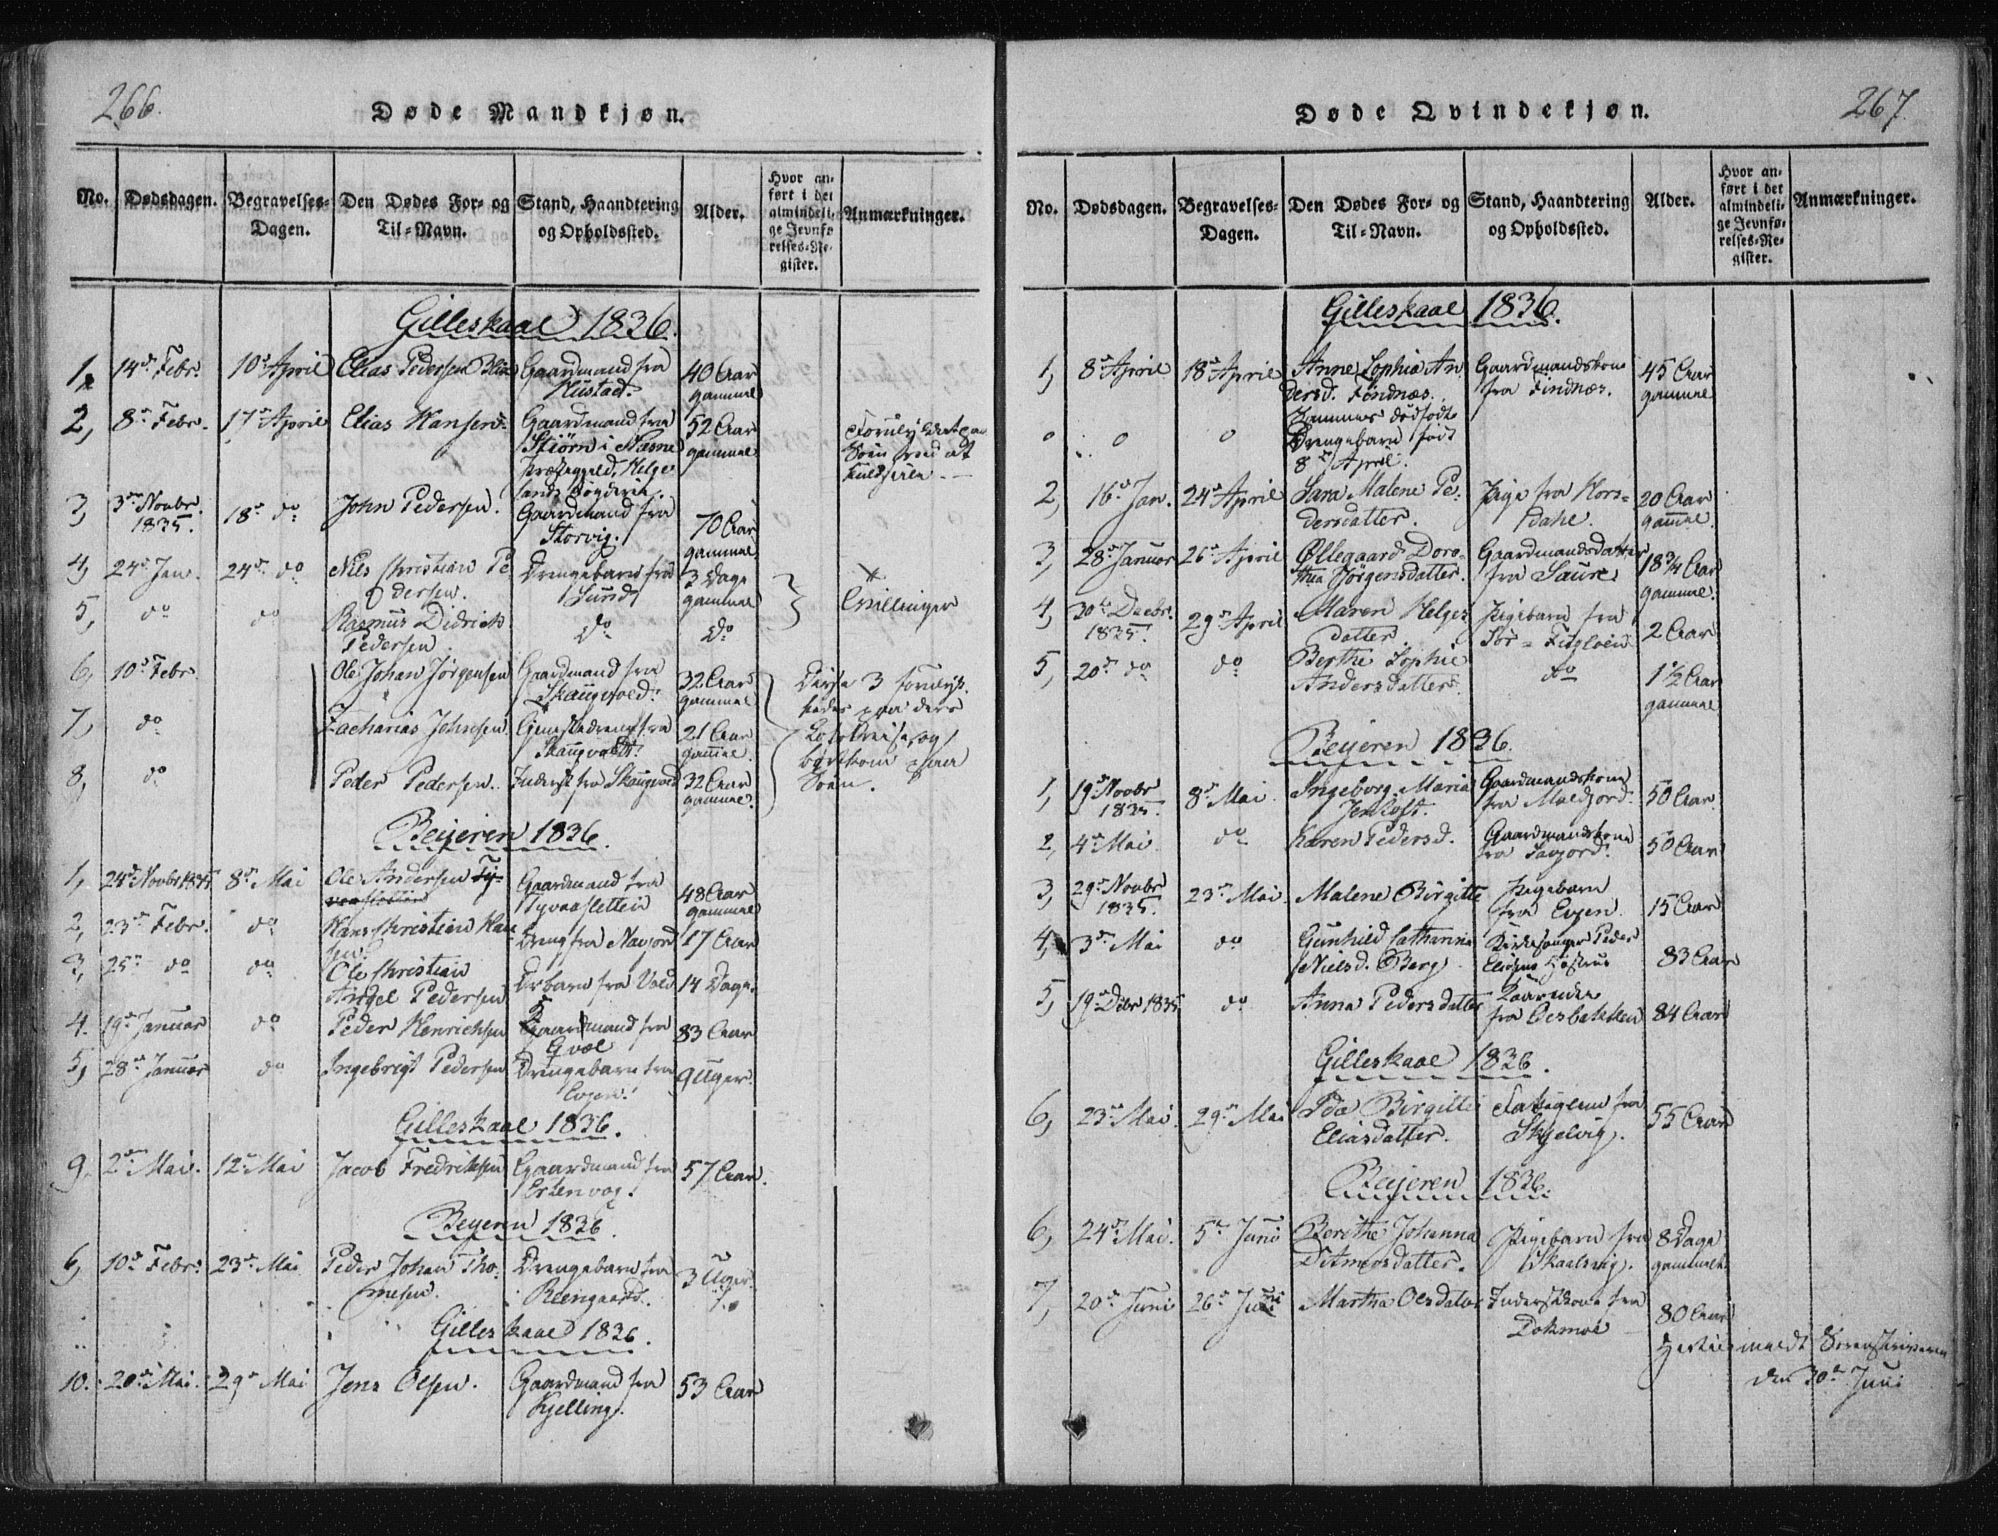 266.
Døde Mandkjøn.
No. Dødsdagen. Begravelses-Dagen. Den Dødes For- og Til-Navn. Stand, Haandtering og Opholdssted. Alder. Hvor anført i det almindelige Jevnførelses-Register. Anmærkninger.
Gilleskaal 1836.
1, 14de Febr. 10de April Elias Pedersen Gaardmand fra Hustad. 40 Aar gammel
2, 8de Febr. 17de April Elias Hansen Gaardmand fra Stiørn i Næsne Præstegjeld, Helgelands 52 Aar gammel
3, 3de Novbr. 1835. 18de do John Pedersen. Gaardmand fra Storvig. 70 Aar gammel
4, 24de Jan. 24de do Nils Christian Pedersen. Drengebarn fra Sund 3 Dage gammel
5, do do Rasmus Didrich Pedersen do do Tvillinger
6, 10de Febr. Ole Johan Jørgensen Gaardmand fra Skaugvold. 32 Aar gammel
7, do Zacharias Johnsen Tjenestedreng fra Skaugvold. 21 Aar gammel.
8, do Peder Pedersen. Inderst fra Skaugvold 32 Aar gammel.
Disse 3 forulykkedes paa deres og bortkom paa Søen.
Beijeren 1836.
1, 24de Novbr 1835 8de Mai Ole Andersen Gaardmand fra Tvervaasletten 48 Aar gammel
2, 23de Febr. do Hans Christian Hansen Dreng fra Navjord 17 Aar
3, 25de do do Ole Christian Andel Pedersen Drbarn fra Vold 14 Dage.
4. 19de Januar do Peder Henrichsen Gaardmand fra Qvæl 83 Aar
5, 28de Januar do Ingebrigt Pedersen Drengebarn fra Evjen. 9 Uger.
Gilleskaal 1836.
9. 2den Mai. 12te Mai Jacob Fredriksen Gaardmand fra Ertenvog. 57 Aar.
Beyeren 1836
6, 10de Febr. 23de Mai Peder Johan Thomesen. Drengebarn fra Reengaard. 3 Uger
Gilleskaal 1836.
10. 20de Mai. 29de Mai Jens Olsen. Gaardmand fra Kjelling. 53 Aar
267.
Døde Qvindekjøn.
No. Dødsdagen. Begravelses-Dagen. Den Dødes For- og Til-Navn. Stand, Haandtering og Opholdssted. Alder. Hvor anført i det almindelige Jevnførelses-Register. Anmærkninger.
Gilleskaal 1836.
1, 8de April 18de April Anne Sophia Andersd. Findnæs. Gaardmandskone fra Findnæs. 45 Aar gammel
o o o Sammes dødfødte Drengebarn født 8de April.
2, 16de Jan. 24de April Sara Malene Pedersdatter. Pige fra Horsdahl. 20 Aar gammel.
3, 28de Januar 26de April Øllegaard Dorothea Jørgensdatter. Gaardmandsdatter fra Saure 18 3/4 Aar gammel.
4, 30te Decbr. 1835. 29de April Maren Helgesdatter Pigebarn fra Sør-Fugløen 2 Aar
5, 20de do do Berthe Sophie Andersdatter. do 1 1/2 Aar gammel
Beijeren 1836.
1, 19de Novbr 1835. 8de Mai. Ingeborg Maria Jentoft. Gaardmandskone fra Moldjord. 50 Aar.
2, 4de Mai. do Karen Pedersd. Gaardmandskone fra 50 Aar
3, 29de Novbr 1835. 23de Mai. Malene Birgitte Pigebarn fra Evjen. 15 Aar
4, 3de Mai do Gunhild Catharina Nielsd. Berg. Kirkesanger Peder 83 Aar
5, 19de Debr 1835 do Anna Pedersdatter fra Oesbakken 84 Aar
Gilleskaal 1836.
6, 23de Mai. 29de Mai Ida Birgitte Eliasdatter. fra Skjelvig. 55 Aar
Beijeren 1836.
6, 24de Mai. 5te Juni Berithe Johanna Ditmersdatter. Pigebarn fra Skaalsvig. 8 Dage gammelt
7, 20de Juni 26de Juni Martha Olsdatter Inderstkone fra Dokmoe 80 Aar
Hertil meldt Sorenskriveren
den 30te Juni